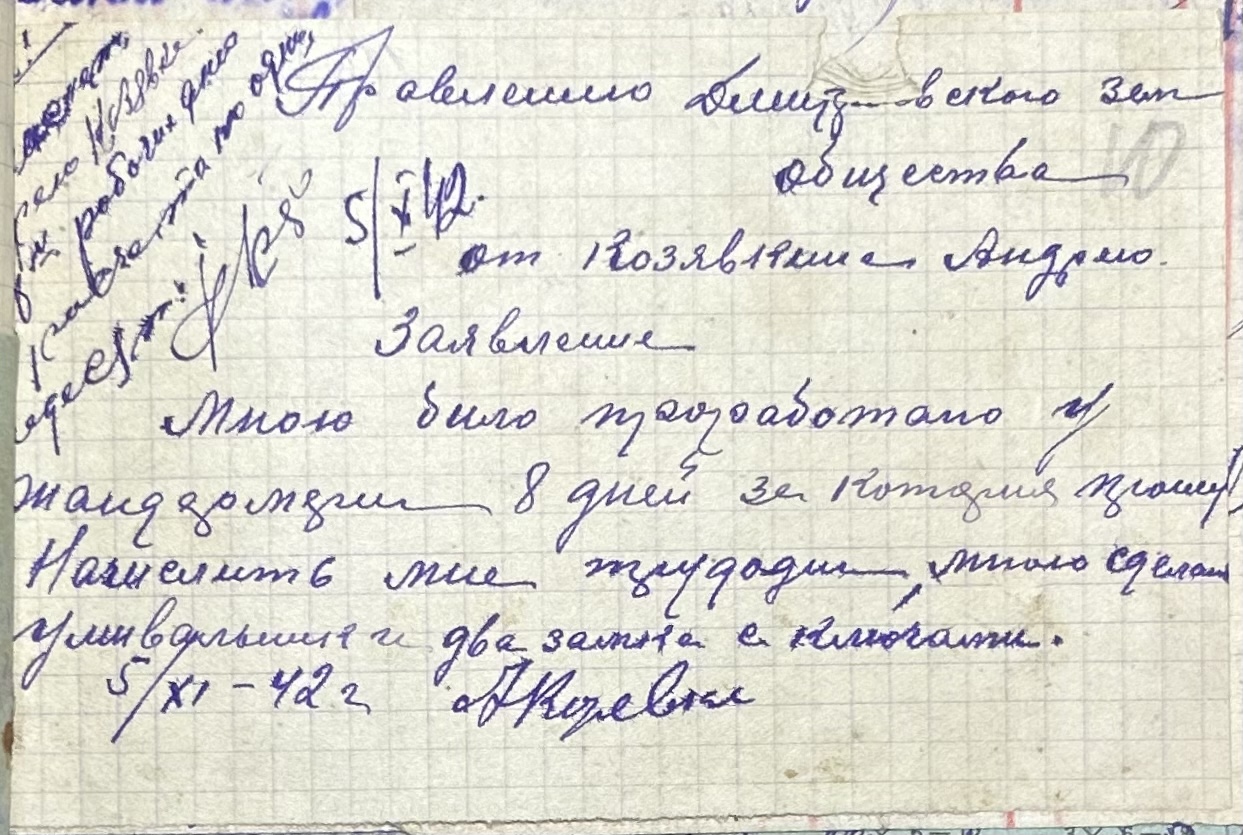 Правлению Дмитровского зем
общества
от Козявкина Андрею.
5/XI 42.
Заявление
Мною было проработано у
жандармерии 8 дней за которыя прошу
Начислить мне трудодни, мною сделан
умивальник и два замка с ключами.
5/XI – 42 г. АКозявки
рабочих дню
по одно,